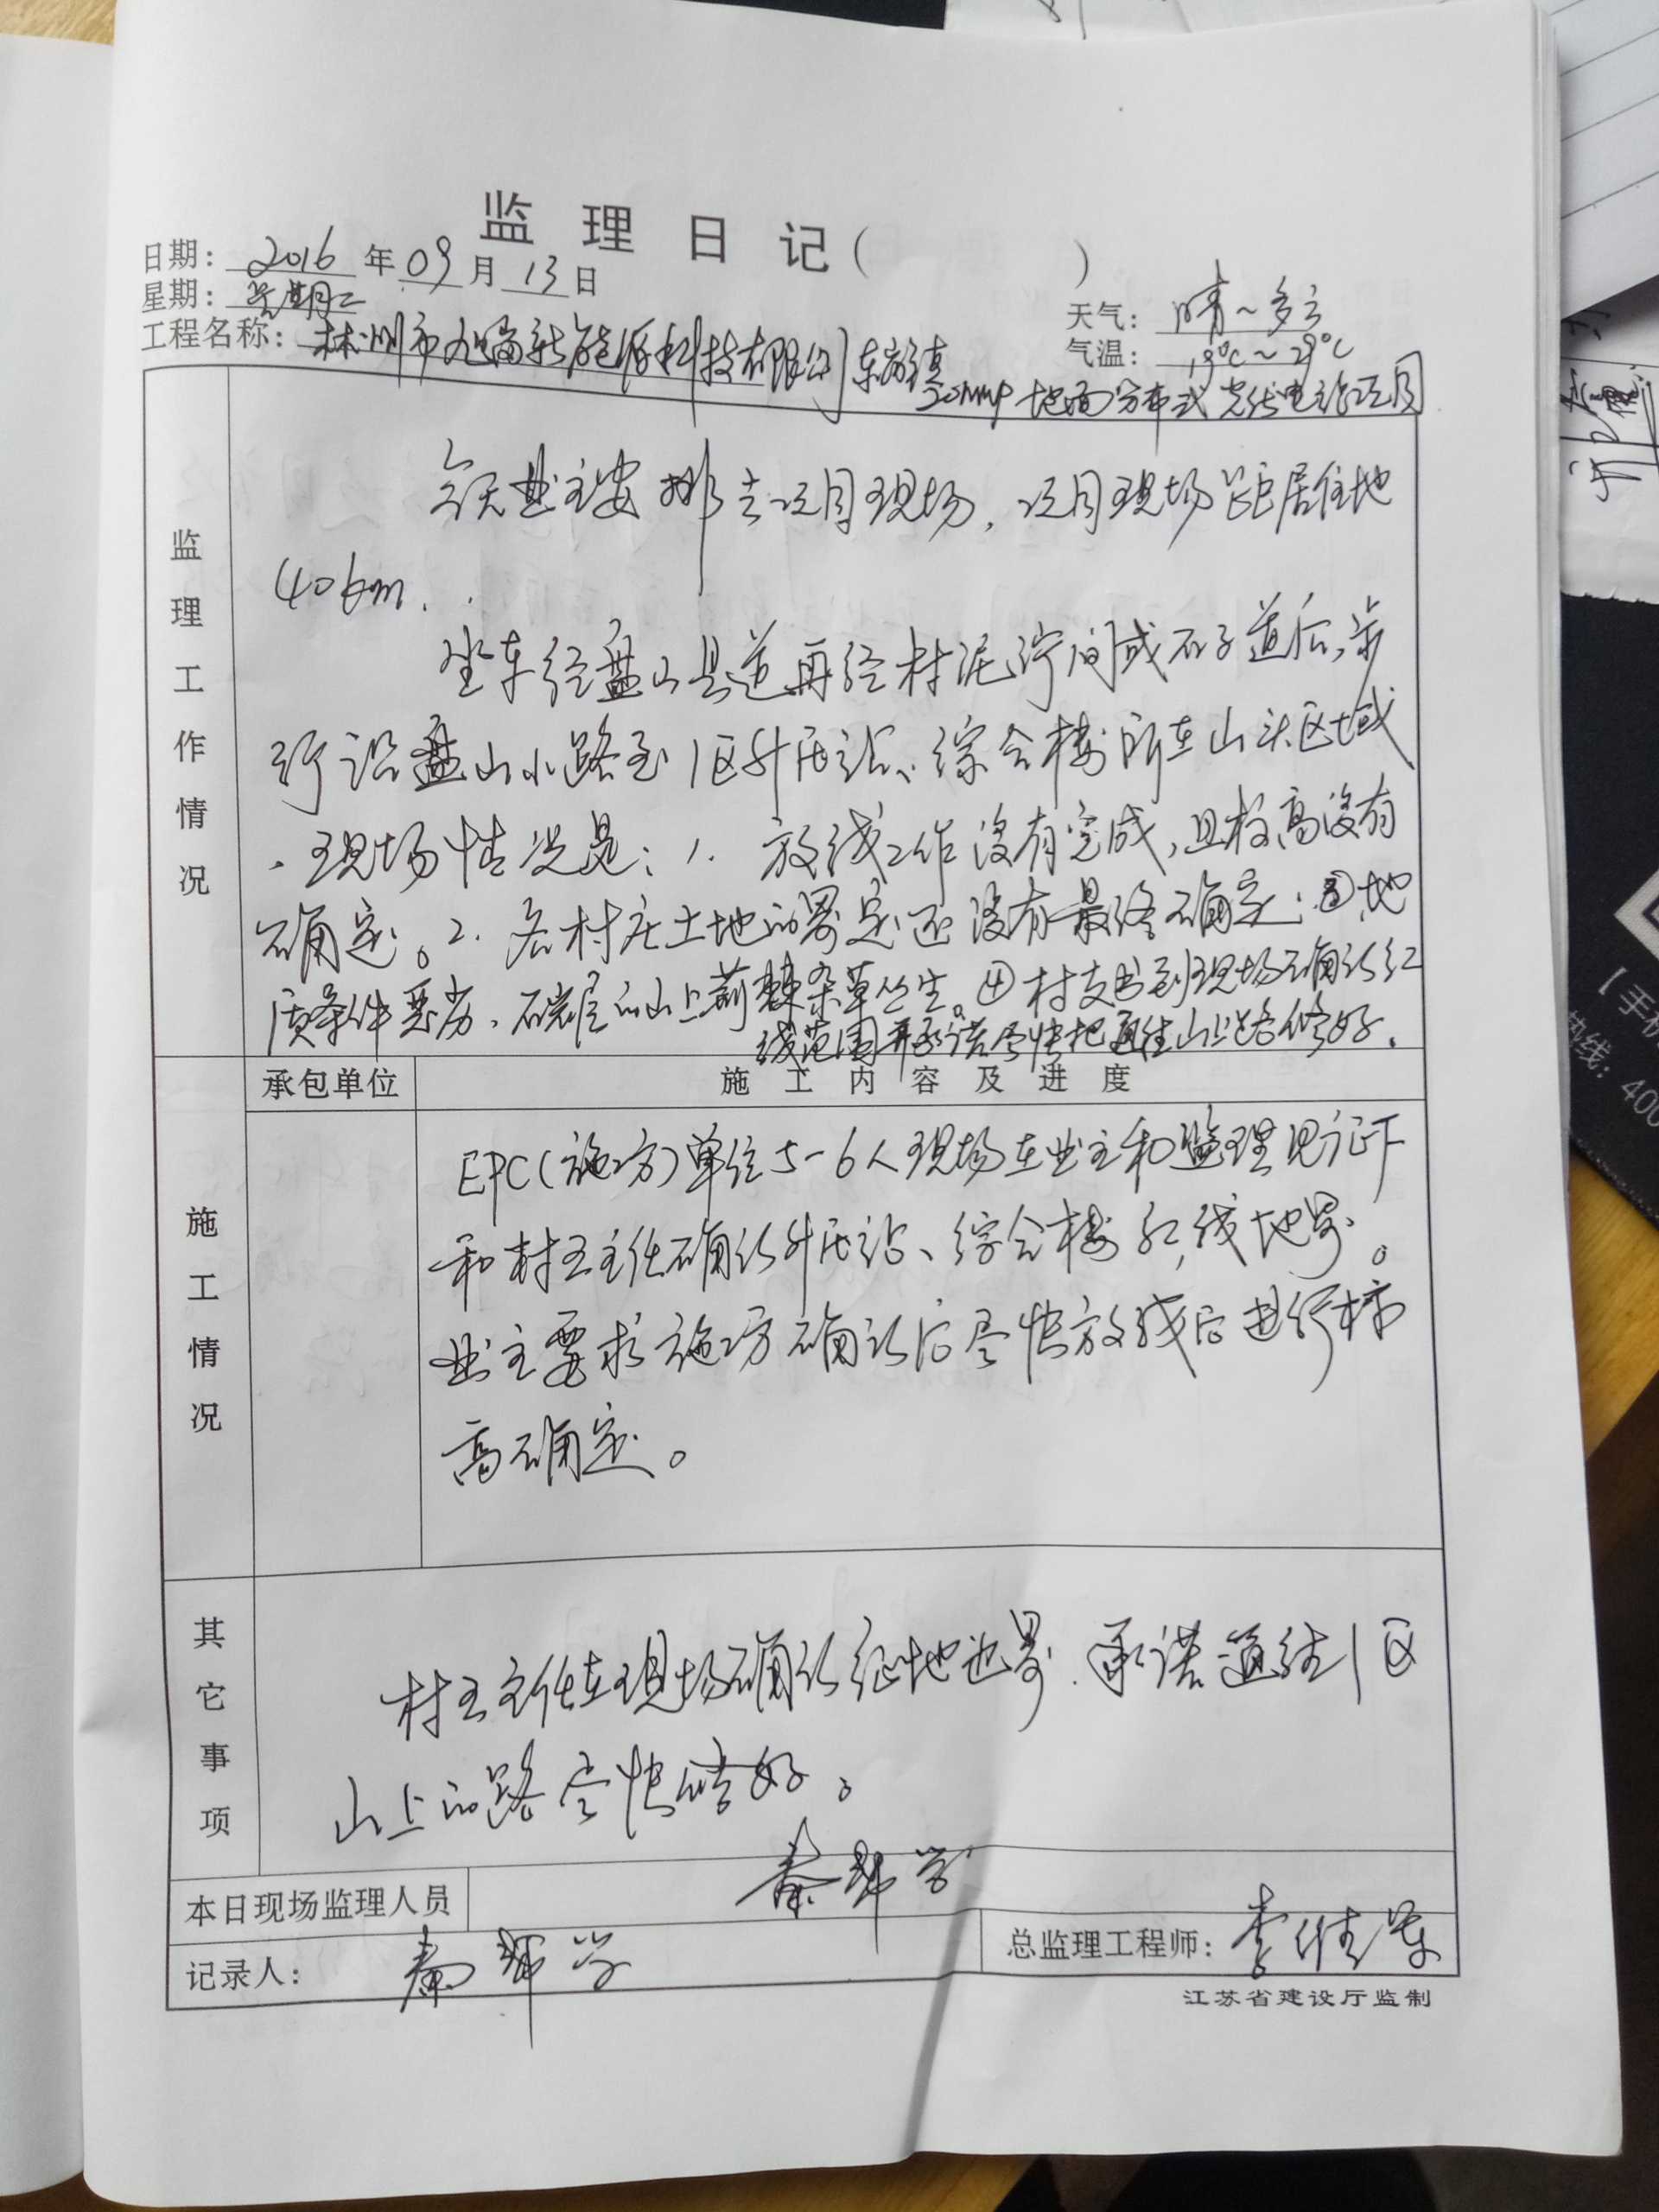 监 理 日 记（ ）
日期：2016 年 09 月 13 日
星期：星期二
天气：晴～多云
气温：19℃～29℃
工程名称：林州市 新能源科技有限公司东 镇20MWP 地面分布式光伏电站项目
监理工作情况
今天业主安排去项目现场，项目现场距居住地
40km．
坐车经盘山县道再经村泥泞间或石子道后，步
行沿盘山小路至1区升压站、综合楼所在山头区域
．现场情况是：1．放线工作没有完成，且标高没有
确定。2．各村庄土地的界定还没有最终确定；③地
质条件恶劣、 的山上荆棘杂草丛生。④村支书到现场确认红
线范围并承诺尽快把通往山上路修好．
施工情况
承包单位
施 工 内 容 及 进 度
EPC（施工方）单位5-6人现场在业主和监理见证下
和村王主任确认升压站、综合楼红线地界。
业主要求施工方确认后尽快放线后进行标
高确定。
其它事项
村王主任在现场确认征地边界．承诺通往1区
山上的路尽快修好。
本日现场监理人员 秦 学
记录人：秦 学
总监理工程师：李
江苏省建设厅监制
【手机
热线：400